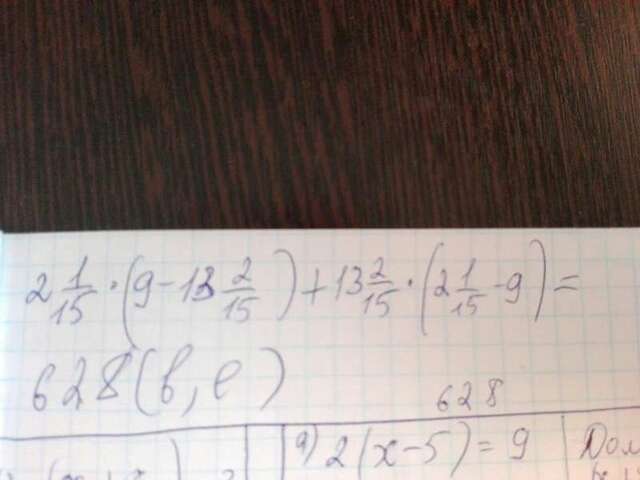 2 1/15 · (9 - 13 2/15) + 13 2/15 · (2 1/15 - 9) =
628 (в, е)
628
а) 2(x-5) = 9
Дом